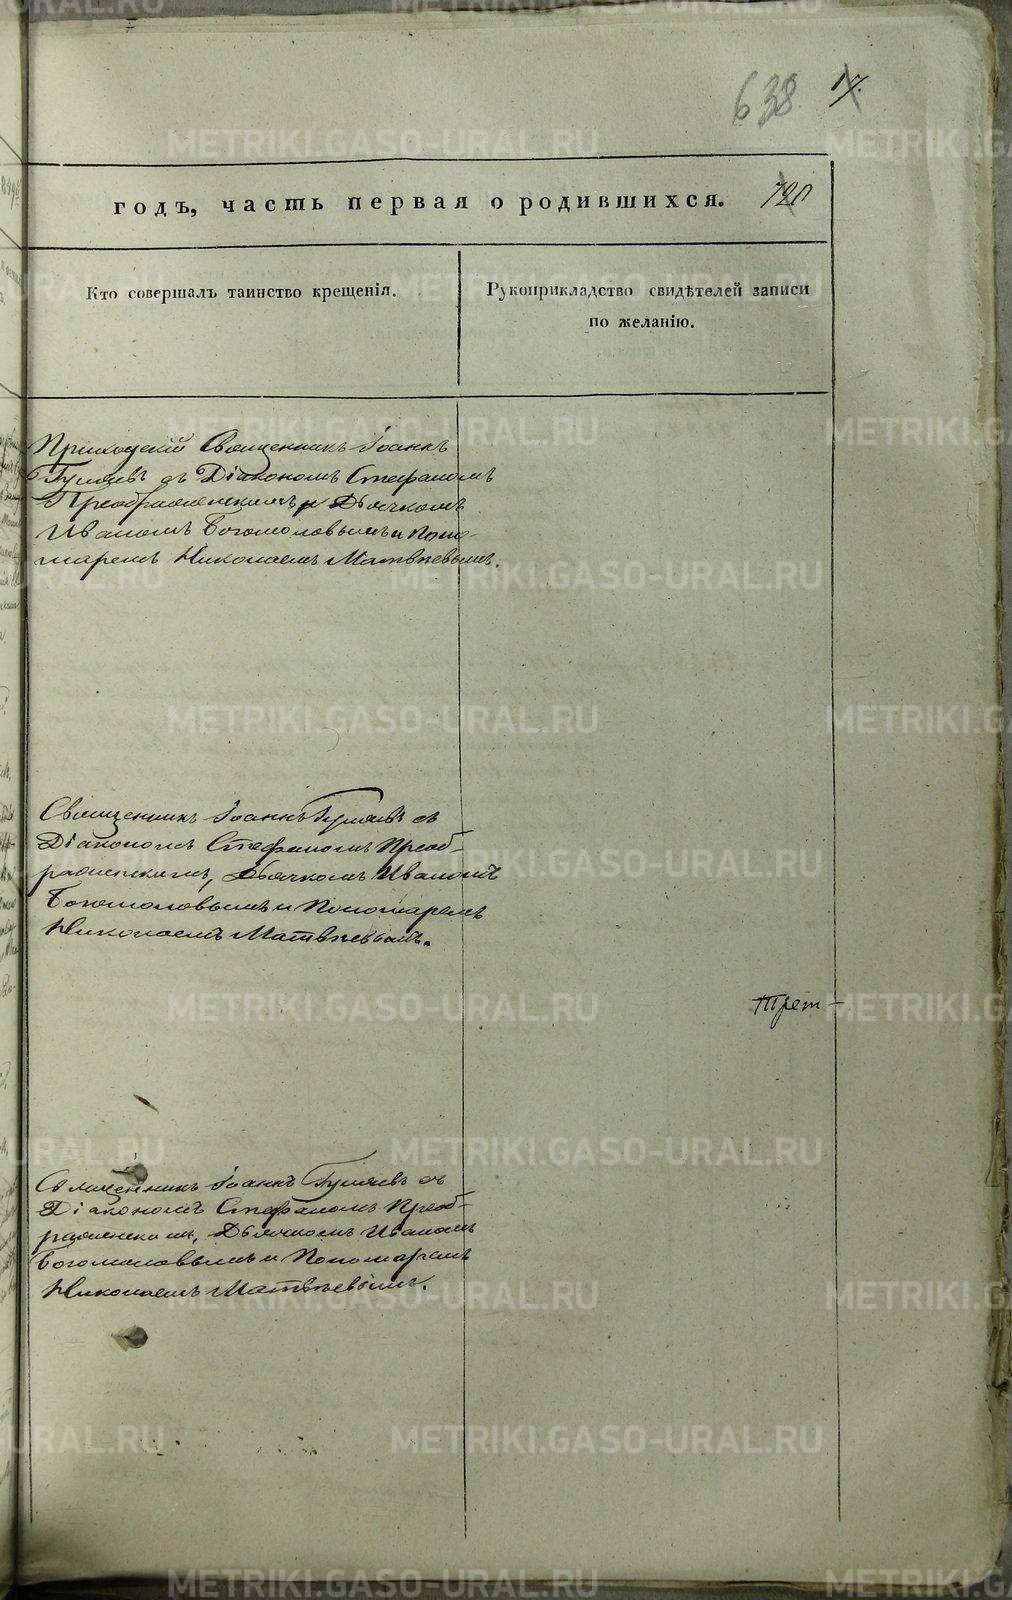 638 17.
годъ, часть первая о родившихся. 120
Кто совершалъ таинство крещенія.
Рукоприкладство свидѣтелей записи
по желанію.
Приходскій Священникъ Іоаннъ
Гуляевъ съ Діакономъ Стефаномъ
Преображенскимъ и Дьячкомъ
Иваномъ Богомоловымъ и Поно-
маремъ Николаемъ Матвѣевымъ.
Священникъ Іоаннъ Гуляевъ съ
Діакономъ Стефаномъ Преоб-
раженскимъ, Дьячкомъ Иваномъ
Богомоловымъ и Пономаремъ
Николаемъ Матвѣевымъ.
Трет-
Священникъ Іоаннъ Гуляевъ съ
Діакономъ Стефаномъ Преоб-
раженскимъ, Дьячкомъ Иваномъ
Богомоловымъ и Пономаремъ
Николаемъ Матвѣевымъ.
METRIKI.GASO-URAL.RU